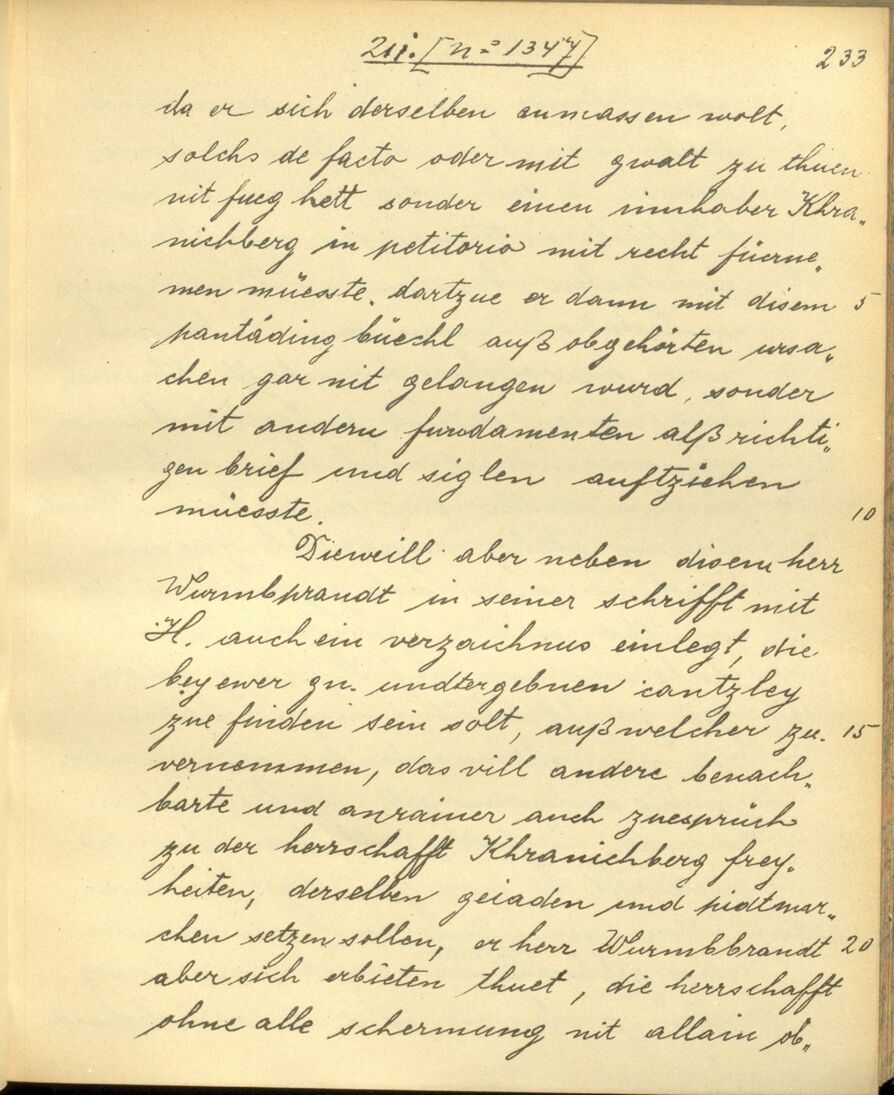 2ii. [n=o 1347]
233
da er sich derselben anmassen wolt,
solchs de facto oder mit gwalt zu thuen
nit fueg hett sonder einen innhaber Khra„
nichberg in petitorio mit recht füerne„
men müesste. dartzue er dann mit disem 5
pantäding büechl auß obgehörten ursa„
chen gar nit gelangen wurd, sonder
mit andern fundamenten alß richti„
gen brief und siglen auftziehen
müesste. 10
Dieweill aber neben disem herr
Wurmbprandt in seiner schrifft mit
H. auch ein verzaichnus einlegt, die
bey ewer gn. undtergebnen cantzley
zue finden sein solt, auß welcher zu. 15
vernemmen, das vill andere benach„
barte und anrainer auch zuesprüch
zu der herrschafft Khranichberg frey„
heiten, derselben geiaden und pidtmar„
chen setzen sollen, er herr Wurmbbrandt 20
aber sich erbieten thuet, die herrschafft
ohne alle schermung nit allain ob„